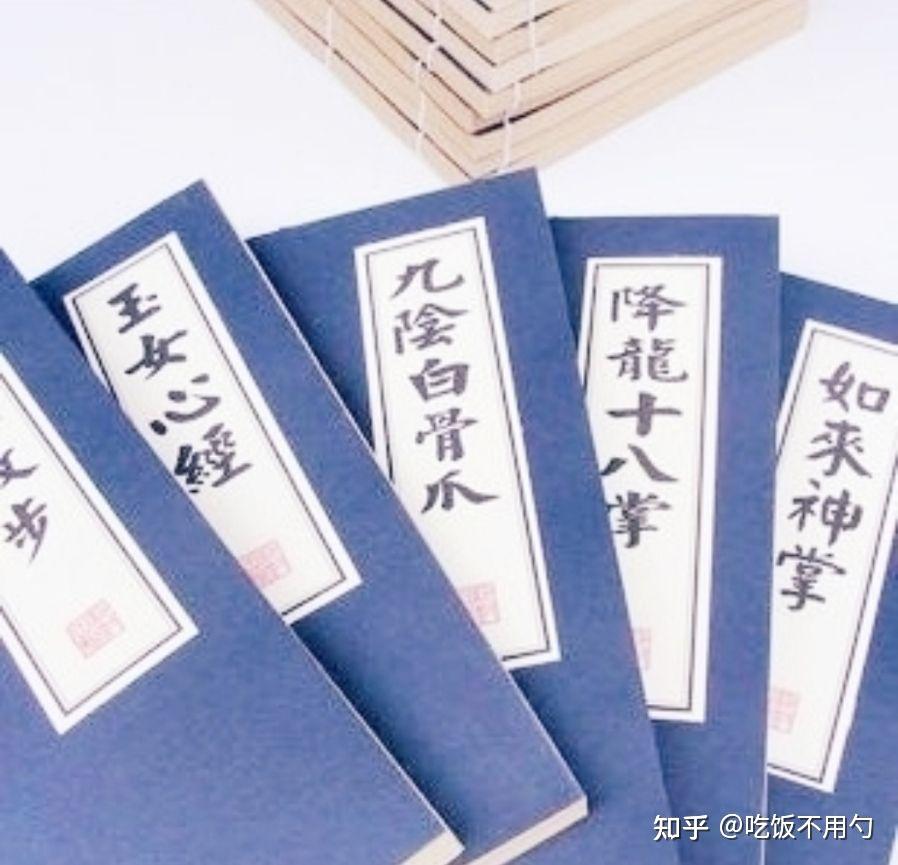 步
玉女心經
九陰白骨爪
降龍十八掌
如來神掌
知乎 @吃饭不用勺